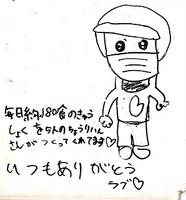 毎日約180食のきゅう
しょくを9人のちょうりいん
さんがつくってくれてます
いつもありがとう
ラブ♡